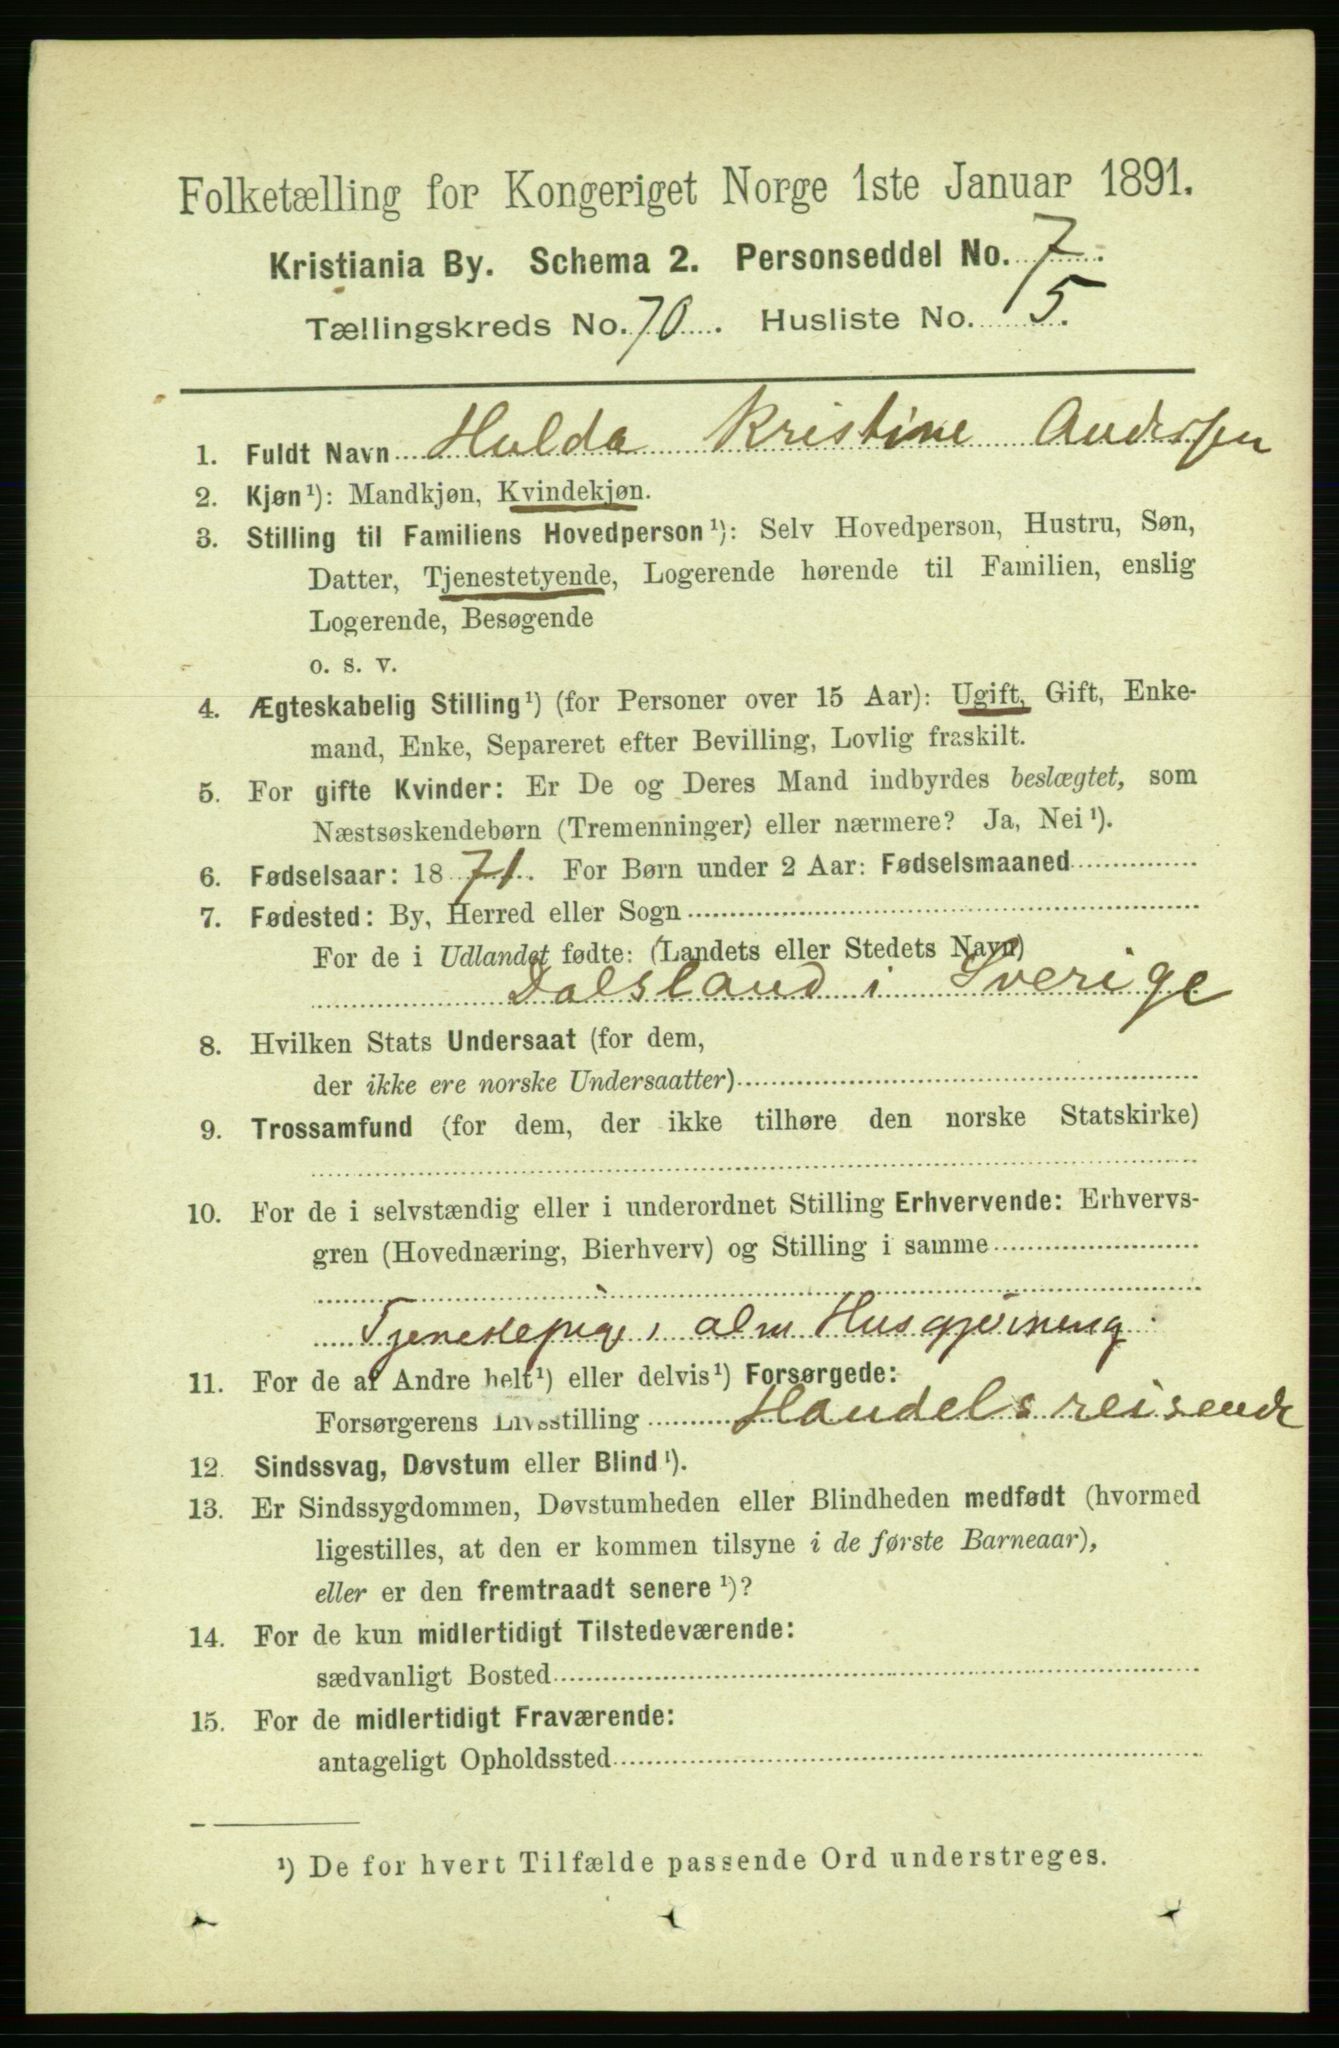 Folketælling for Kongeriget Norge 1ste Januar 1891.
Kristiania By. Schema 2. Personseddel No. 7.
Tællingskreds No. 70. Husliste No. 5.
1. Fuldt Navn Hulda Kristine Anderssen
2. Kjøn ¹): Mandkjøn, Kvindekjøn.
3. Stilling til Familiens Hovedperson ¹): Selv Hovedperson, Hustru, Søn,
Datter, Tjenestetyende, Logerende hørende til Familien, enslig
Logerende, Besøgende
o. s. v.
4. Ægteskabelig Stilling ¹) (for Personer over 15 Aar): Ugift, Gift, Enke-
mand, Enke, Separeret efter Bevilling, Lovlig fraskilt.
5. For gifte Kvinder: Er De og Deres Mand indbyrdes beslægtet, som
Næstsøskendebørn (Tremenninger) eller nærmere? Ja, Nei ¹).
6. Fødselsaar: 1871. For Børn under 2 Aar: Fødselsmaaned
7. Fødested: By, Herred eller Sogn
For de i Udlandet fødte: (Landets eller Stedets Navn)
Dalsland i Sverige
8. Hvilken Stats Undersaat (for dem,
der ikke ere norske Undersaatter)
9. Trossamfund (for dem, der ikke tilhøre den norske Statskirke)
10. For de i selvstændig eller i underordnet Stilling Erhvervende: Erhvervs-
gren (Hovednæring, Bierhverv) og Stilling i samme
Tjenestepige, i alm Husgjerning.
11. For de af Andre helt ¹) eller delvis ¹) Forsørgede:
Forsørgerens Livsstilling Handelsreisende
12. Sindssvag, Døvstum eller Blind ¹).
13. Er Sindssygdommen, Døvstumheden eller Blindheden medfødt (hvormed
ligestilles, at den er kommen tilsyne i de første Barneaar),
eller er den fremtraadt senere ¹)?
14. For de kun midlertidigt Tilstedeværende:
sædvanligt Bosted
15. For de midlertidigt Fraværende:
antageligt Opholdssted
¹) De for hvert Tilfælde passende Ord understreges.